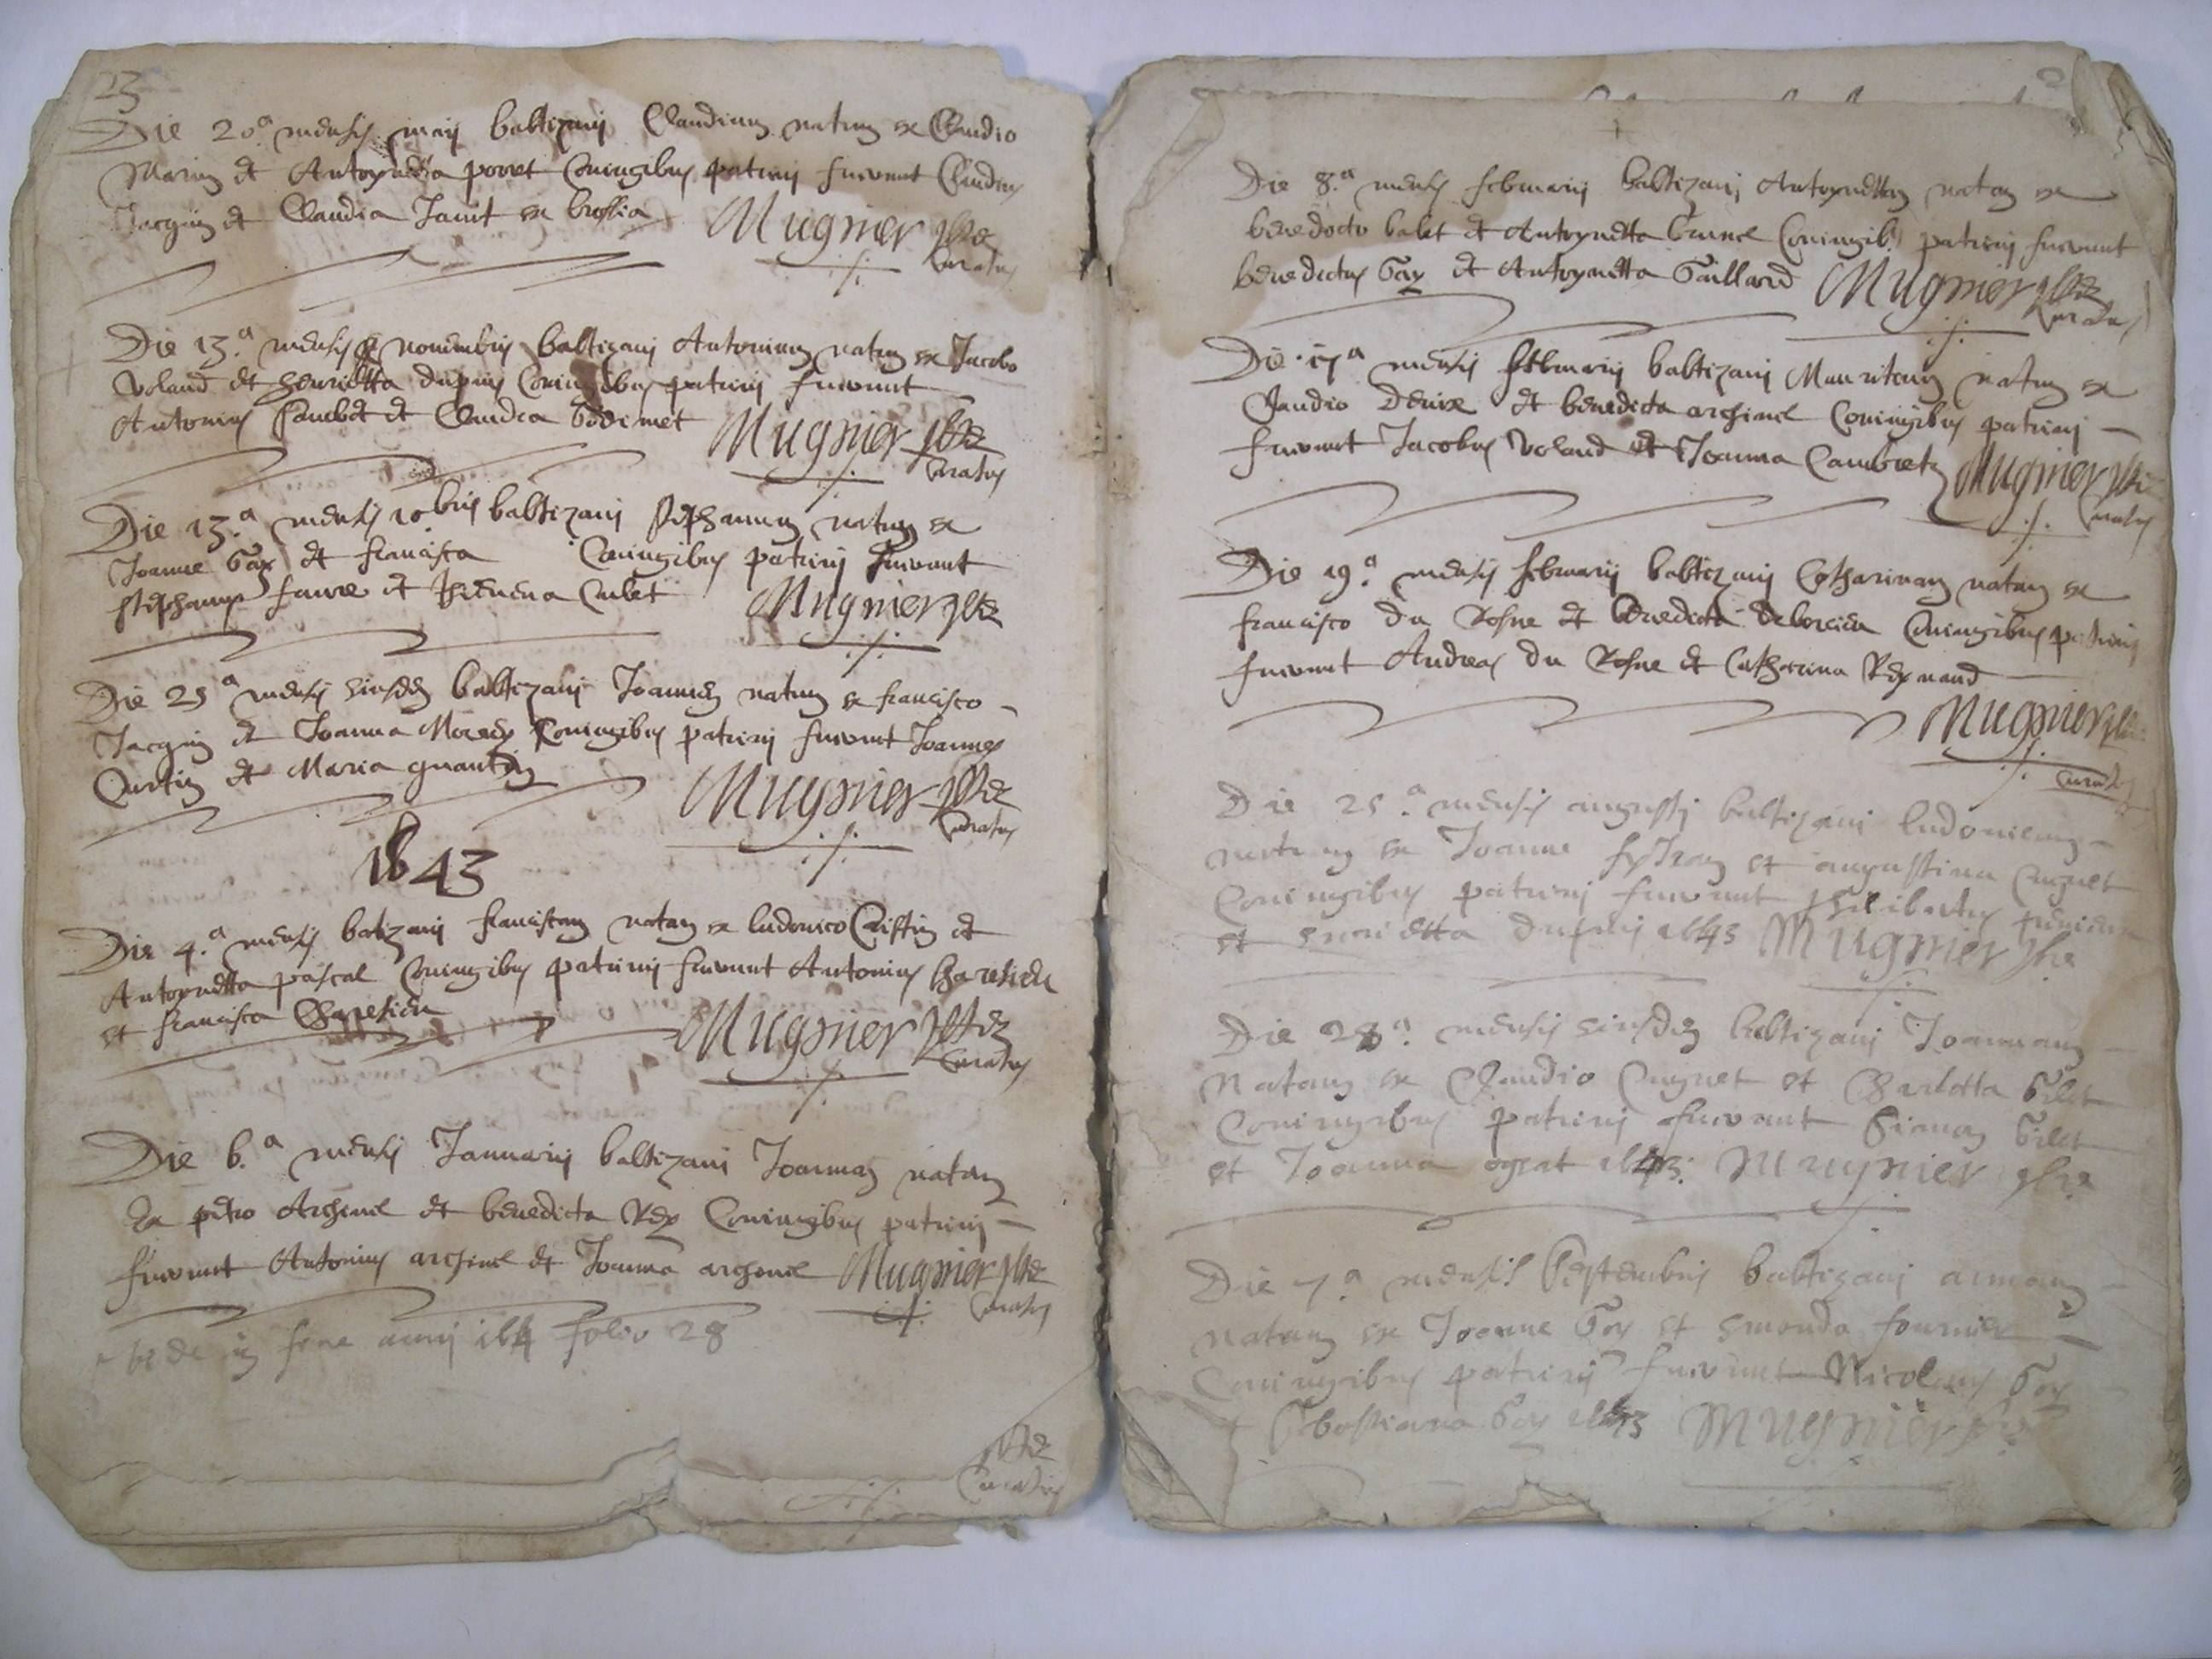 23
Die 20.a mensis maii baltizavi Claudium natum ex Claudio
Marin et Antoynetta poret Coniugibus patrini fuerunt Claudius
Jacquin et Claudia Janit ex brossia Mugnier pbr
Curatus
Die 13.a mensis novembris baltizavi Antonium natum ex Jacobo
Voland et henrietta dupuis Coniugibus patrini fuerunt
Antonius et Claudia Godimet Mugnier pbr
Curatus
Die 13.a mensis 10bris baltizavi stephanum natum ex
Joanne Gay et francisca Coniugibus patrini fuerunt
stephanus faure et Cubet Mugnier pbr
Die 25a mensis eiusdem baltizavi Joannem natum ex francisco
Jacquin et Joanna Coniugibus patrini fuerunt Joannes
Curtin et Maria Mugnier pbr
Curatus
1643
Die 4.a mensis batizavi franciscam natam ex ludovico et
Antoynetta pascal Coniugibus patrini fuerunt Antonius
et francisca Mugnier pbr
Curatus
Die 6.a mensis Januarii baltizavi Joannam natam
Ex petro Archinel et benedicta Rey Coniugibus patrini
fuerunt Antonius archinel et Joanna archinel Mugnier pbr
Curatus
vide in fine anni 164 folio 28
pbr
Curatus
Die 8.a mensis februarii baltizavi Antoynettam natam ex
benedicto balet et Antoynetta brunel Coniugib. patrini fuerunt
benedictus Gay et Antoynetta Gaillard Mugnier pbr
Curatus
Die 17a mensis februarii baltizavi Mauritium natum ex
Claudio Denix et benedicta archinel Coniugibus patrini
fuerunt Jacobus Voland et Joanna Mugnier pbr
Curatus
Die 19.a mensis februarii baltizavi Catharinam natam ex
francisco du Rosne et benedicta Coniugibus patrini
fuerunt Andreas du Rosne et Catharina Reynaud
Mugnier pbr
Curatus
Die 25.a mensis augusti baltizavi ludovicum
natum ex Joanne et augustina Cugnet
Coniugibus patrini fuerunt philibertus
et henrietta dupuis 1643 Mugnier pbr
Die 28a. mensis eiusdem baltizavi Joannam
Natam ex Claudio Cugnet et Charlotta Gilet
Coniugibus patrini fuerunt Simon Gilet
et Joanna 1643. Mugnier pbr
Die 7.a mensis Septembris baltizavi annam
natam ex Joanne Gay et fournier
Coniugibus patrini fuerunt Nicolaus Gay
et Sebastiana Gay 1643 Mugnier pbr